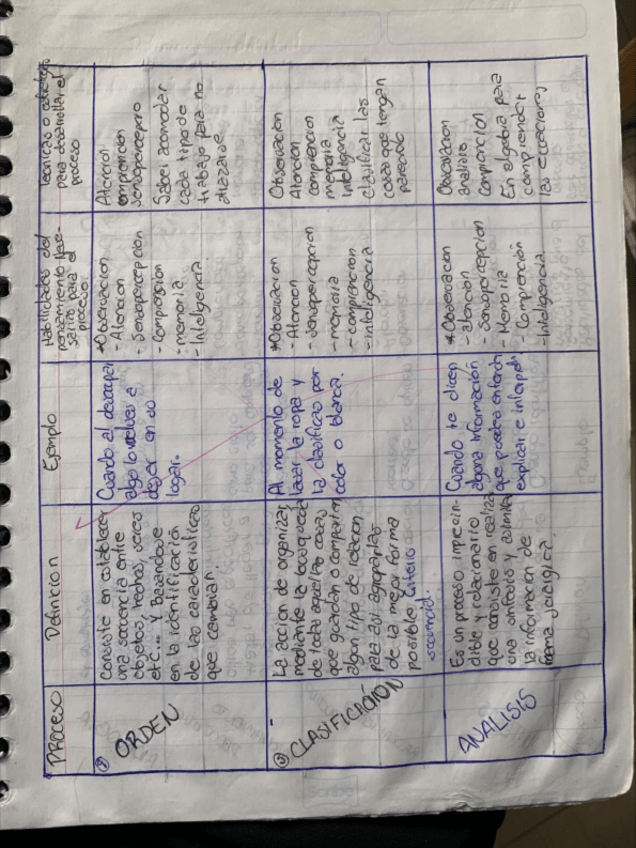 PRoceso
Definicion
Ejemplo
Habilidades del
pensamiento
para el
proceso
Tecnicas o
para desarrollar el
proceso
ORDEN
consiste en establecer
una secuencia entre
objetos, hechos,
etc... y basandose
en la identificación
de las caracteristicas
que cambian.
Cuando al
algo lo vuelves a
dejar en su
lugar.
*Observacion
- Atencion
- Sensopercepcion
- Comprension
- memoria
- Inteligencia
Atencion
comprension
Saber acomodar
cada tipo de
trabajo para no
CLASIFICACIÓN
La accion de organizar
mediante la busqueda
de todas aquellas cosas
que guardan o comparten
algun tipo de relacion
para asi agruparlas
de la mejor forma
posible, criterio
Al momento de
lavar la ropa y
la clasificas por
color o blanca.
*Observacion
- Atencion
- Sensopercepcion
- memoria
- comprencion
- inteligencia
Observacion
Atencion
comprencion
memoria
inteligencia
clasificar las
cosas que tengan
parecido
ANALISIS
Es un proceso imprecin-
dible y relacionario
que consiste en realizar
una y asimila
la informacion de
forma
Cuando te dicen
alguna información
que puedes entender
explicar e
*Observacion
- atención
- Sensopercepcion
- Memoria
- Comprención
- Inteligencia
Observacion
analisis
Comprencion
En algebra para
comprender
las ecuaciones